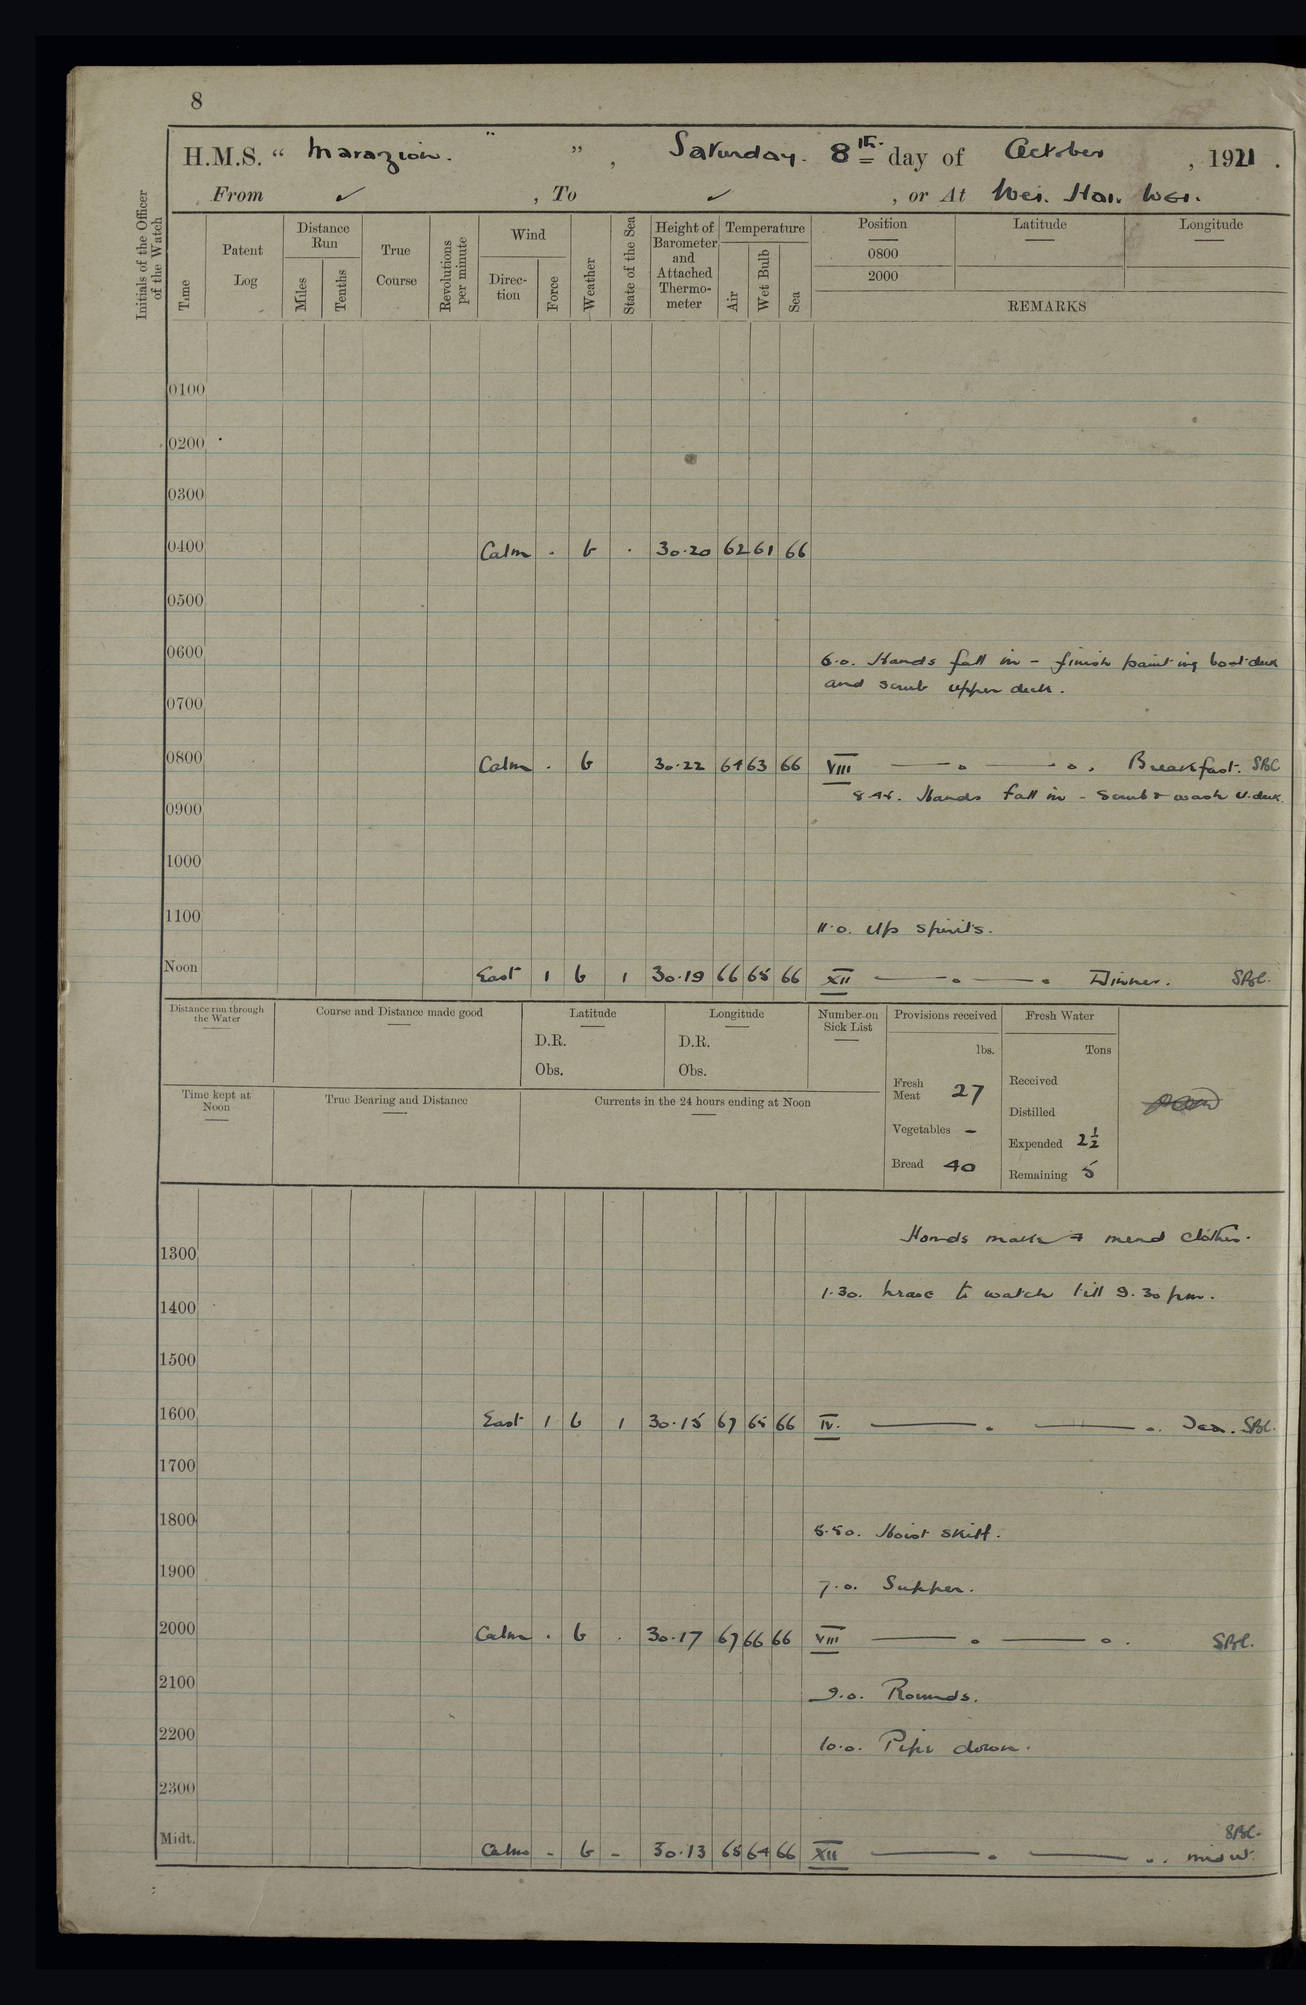 8
H.M.S. “ Marazion. ” , Saturday. 8th. day of October , 1921 .
From ✓ , To ✓ , or At Wei. Hai. Wei.
Initials of the Officer of the Watch
Time
Patent Log
Distance Run
Miles
Tenths
True Course
Revolutions per minute
Wind
Direction
Force
Weather
State of the Sea
Height of Barometer and Attached Thermometer
Temperature
Air
Wet Bulb
Sea
Position
0800
2000
Latitude
Longitude
REMARKS
0100
0200
0300
0400 Calm . b . 30.20 62 61 66
0500
0600 6.0. Hands fall in – finish painting boat deck
and scrub upper deck.
0700
0800 Calm . b 30.22 64 63 66 VIII Breakfast. SBC
8.45. Hands fall in – Scrub & wash U. deck.
0900
1000
1100 11.0. Up spirits.
Noon East 1 b 1 30.19 66 65 66 XII Dinner. SBC.
Distance run through the Water
Course and Distance made good
Latitude
D.R.
Obs.
Longitude
D.R.
Obs.
Number on Sick List
Provisions received
lbs.
Fresh Meat 27
Vegetables –
Bread 40
Fresh Water
Tons
Received
Distilled
Expended 2½
Remaining 5
Time kept at Noon
True Bearing and Distance
Currents in the 24 hours ending at Noon
Hands make & mend clothes.
1300
1.30. leave to watch till 9.30 pm.
1400
1500
1600 East 1 b 1 30.15 67 65 66 IV. Tea. SBC.
1700
1800 5.50. Hoist skiff.
1900 7.0. Supper.
2000 Calm . b . 30.17 67 66 66 VIII SBC.
2100 9.0. Rounds.
2200 10.0. Pipe down.
2300
SBC.
Midt. Calm - b - 30.13 65 64 66 XII